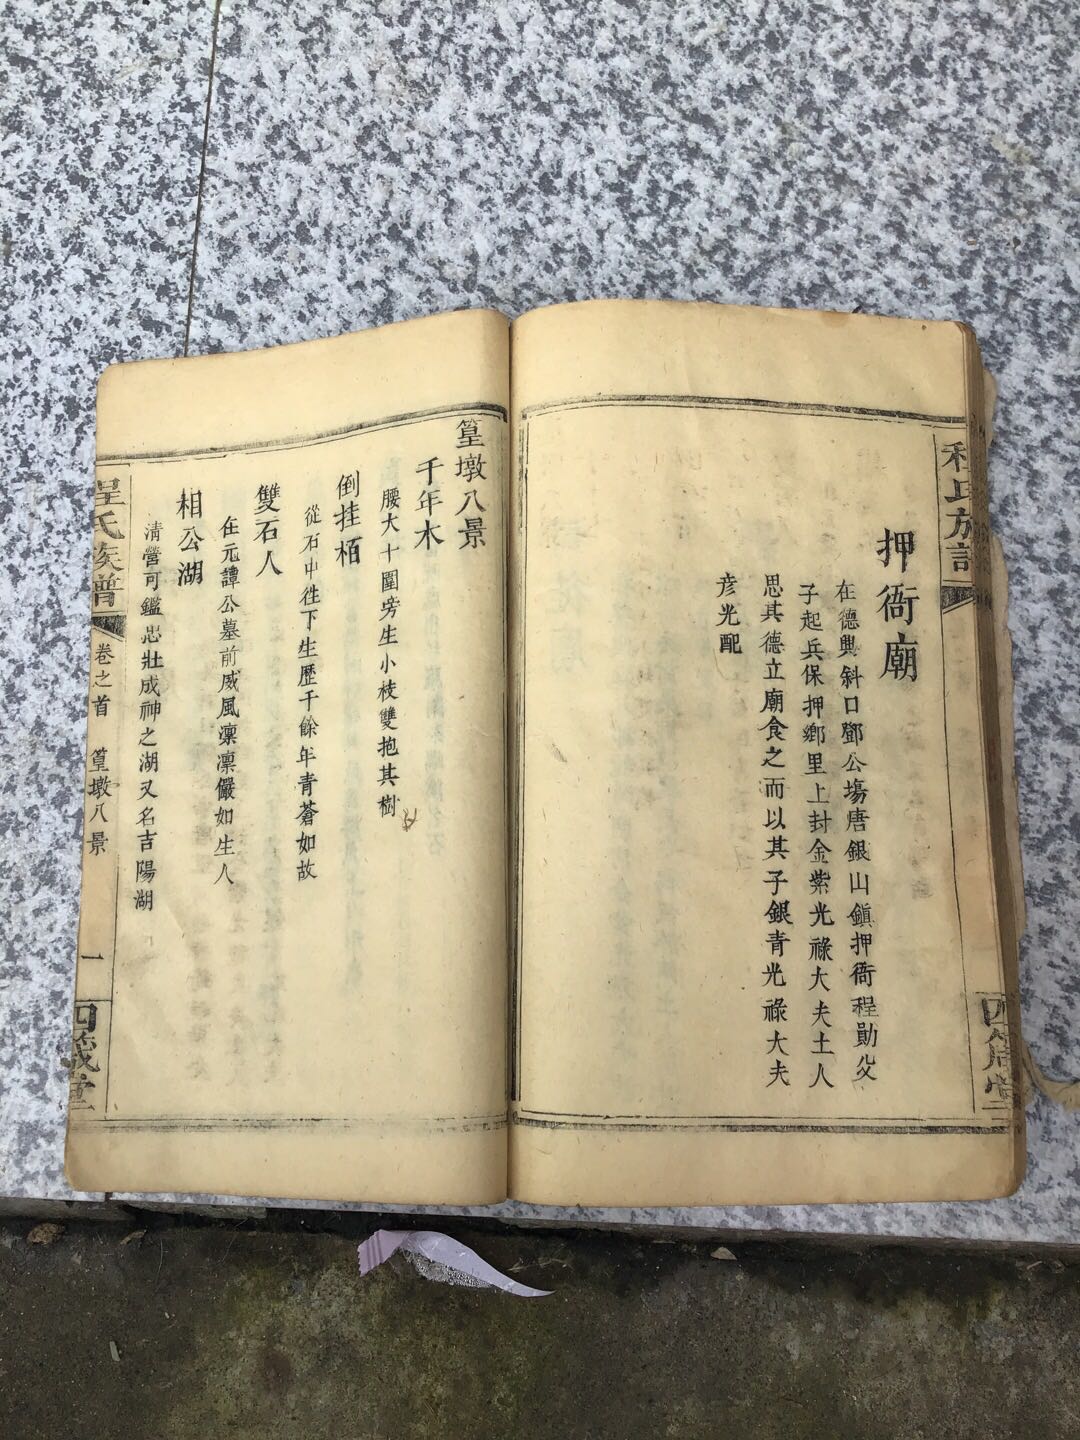 程氏族譜
押衙廟
在德興斜口鄧公塲唐銀山鎮押衙程勛父
子起兵保押鄉里上封金紫光祿大夫土人
思其德立廟食之而以其子銀青光祿大夫
彦光配
篁墩八景
千年木
腰大十圍旁生小枝雙抱其樹
倒挂栢
從石中徃下生歷千餘年青蒼如故
雙石人
在元譚公墓前威風凜凜儼如生人
相公湖
清營可鑑忠壯成神之湖又名吉陽湖
程氏族譜
卷之首
篁墩八景
一
四箴堂